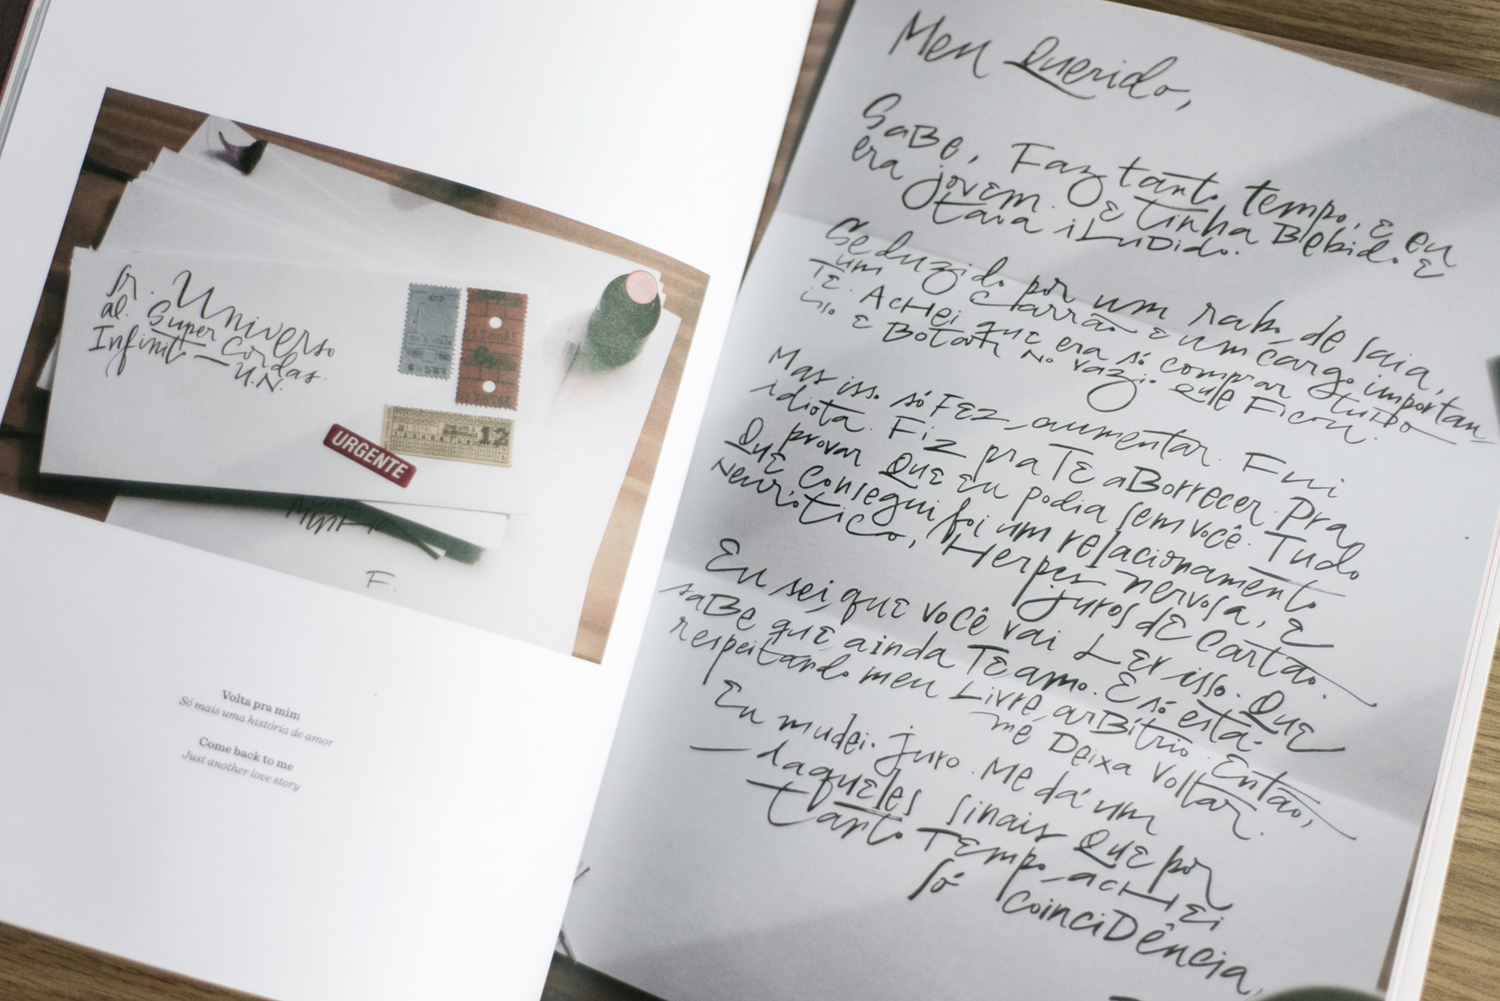 Sr. Universo
al. Super Cordas.
Infinito U.N.
12
URGENTE
F.
Volta pra mim
Só mais uma história de amor
Come back to me
Just another love story
Meu Querido,
Sabe, Faz tanto tempo, e eu
era jovem. E tinha Bebido e
tava iluDido.
Seduzido por um rabo de saia,
um carrão e um cargo importan
TE. AcHei que era só comprar tuDo
isso e Botar no vazio que Ficou.
Mas isso só FEZ aumentar. Fui
idiota. Fiz pra TE aBorrecer. Pra
provar Que Eu podia sem você. Tudo
Que consegui foi um relacionamento
neurótico, Herpes nervosa, E
juros dE cartão.
Eu sei que você vai Ler isso. Que
saBe que ainda Te amo. E só está
respeitando meu Livre arBítrio. Então,
me Deixa Voltar.
Eu mudei. juro. Me dá um
daqueles sinais Que por
tanto Tempo acHEi
só coinciDência,